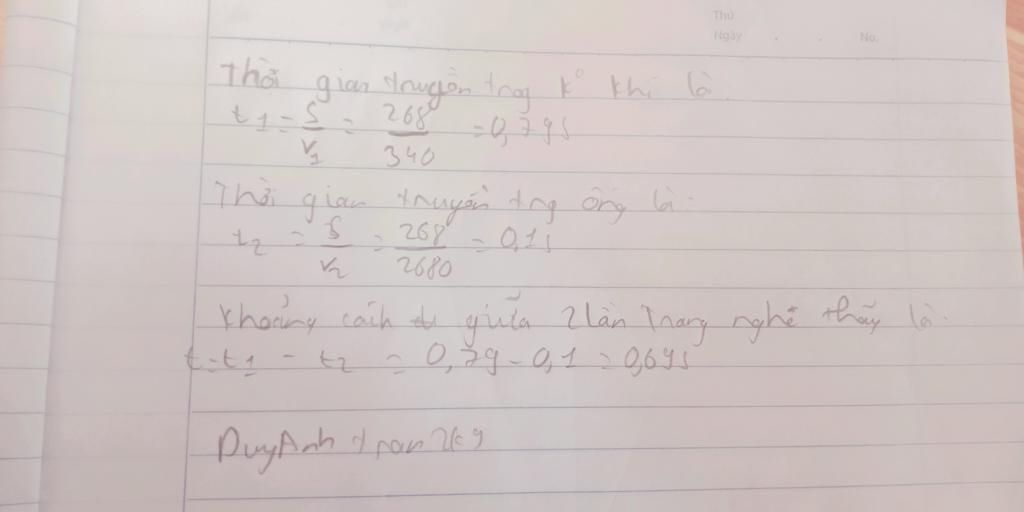 Thứ
Ngày . . No.
Thời gian truyền trog k° khí là
t1 = S/v1 = 268/340 = 0,79s
Thời gian truyền trg ống là:
t2 = S/v2 = 268/2680 = 0,1s
Khoảng cách giữa 2 lần Trang nghe thấy là:
t = t1 - t2 = 0,79 - 0,1 = 0,69s
DuyAnh tran 2k9